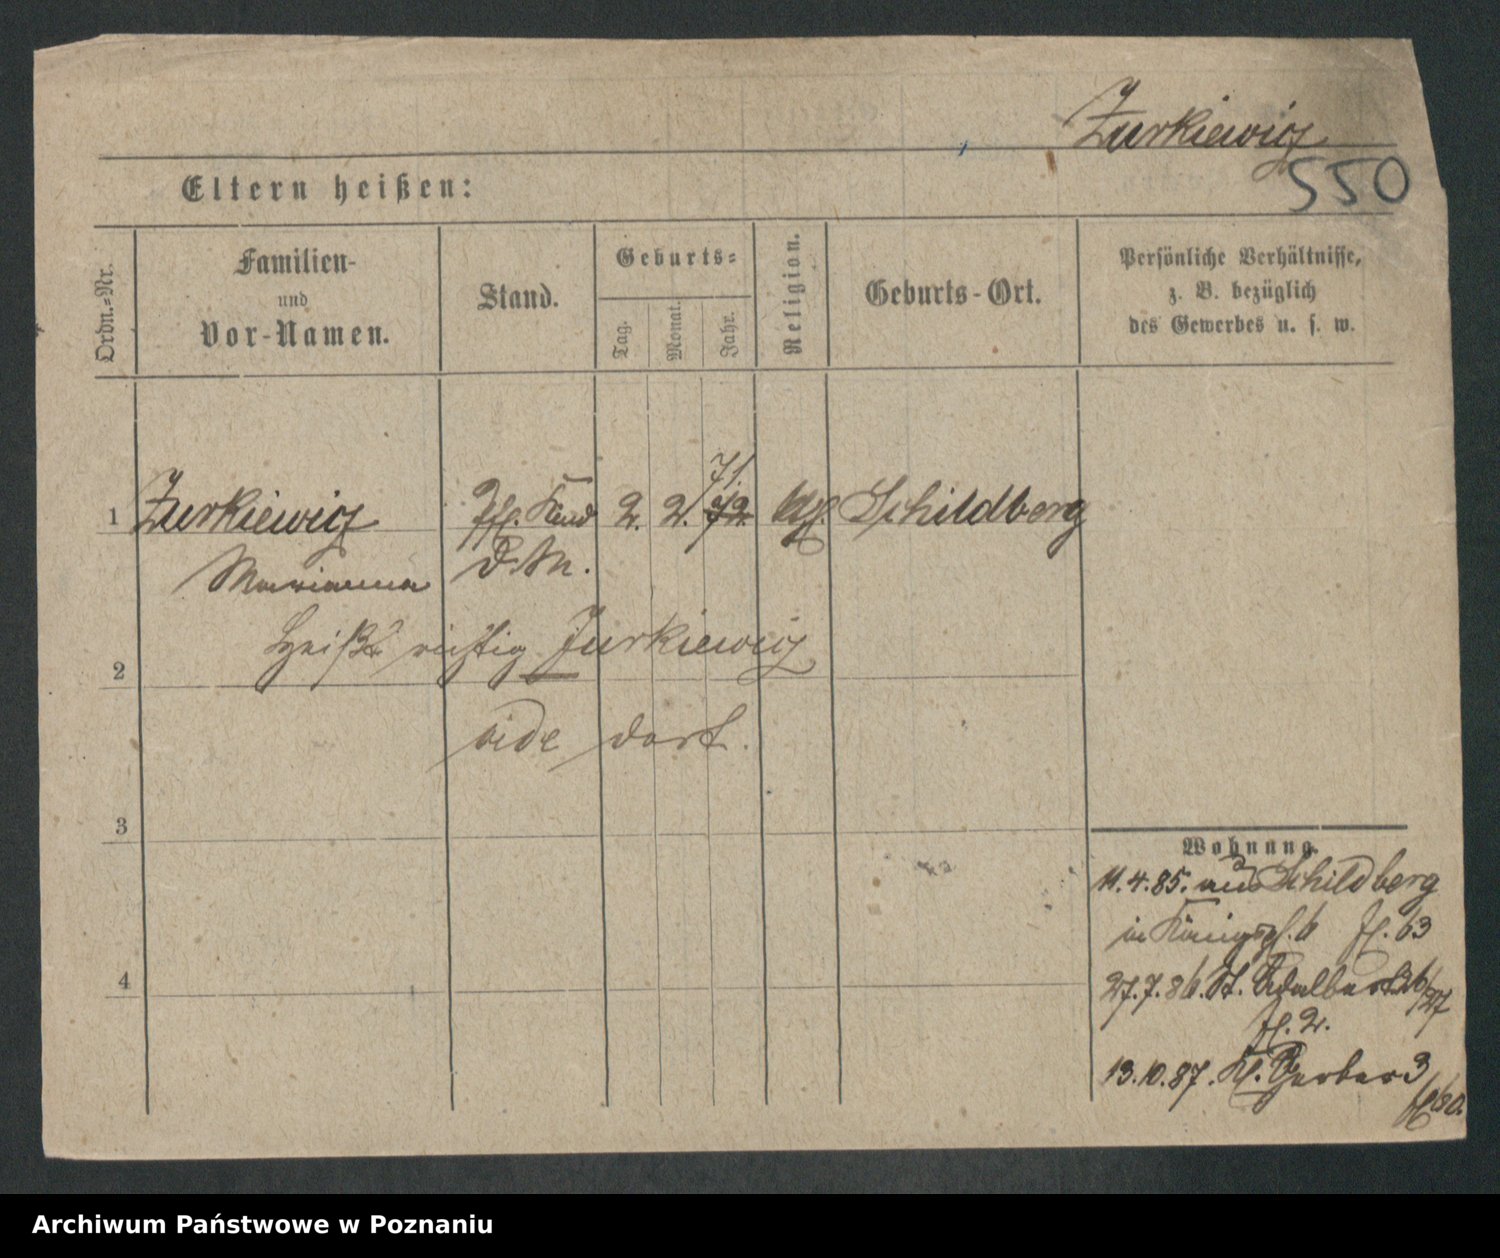 Zurkiewicz
550
Eltern heißen:
Ordn.-Nr.
Familien-
und
Vor-Namen.
Stand.
Geburts-
Tag.
Monat.
Jahr.
Religion.
Geburts-Ort.
Persönliche Verhältnisse,
z. B. bezüglich
des Gewerbes u. s. w.
71.
1 Zurkiewicz 2. 2. 72. kth. Schildberg
Marianna D. M.
2 Heißt richtig Jurkiewicz
vide dort.
3
Wohnung.
11.4.85. aus Schildberg
in Königspl. 6 63
4
27.7.86. St. Adalbert 26/27
2.
13.10.87. Kl. Gerber 3
Archiwum Państwowe w Poznaniu